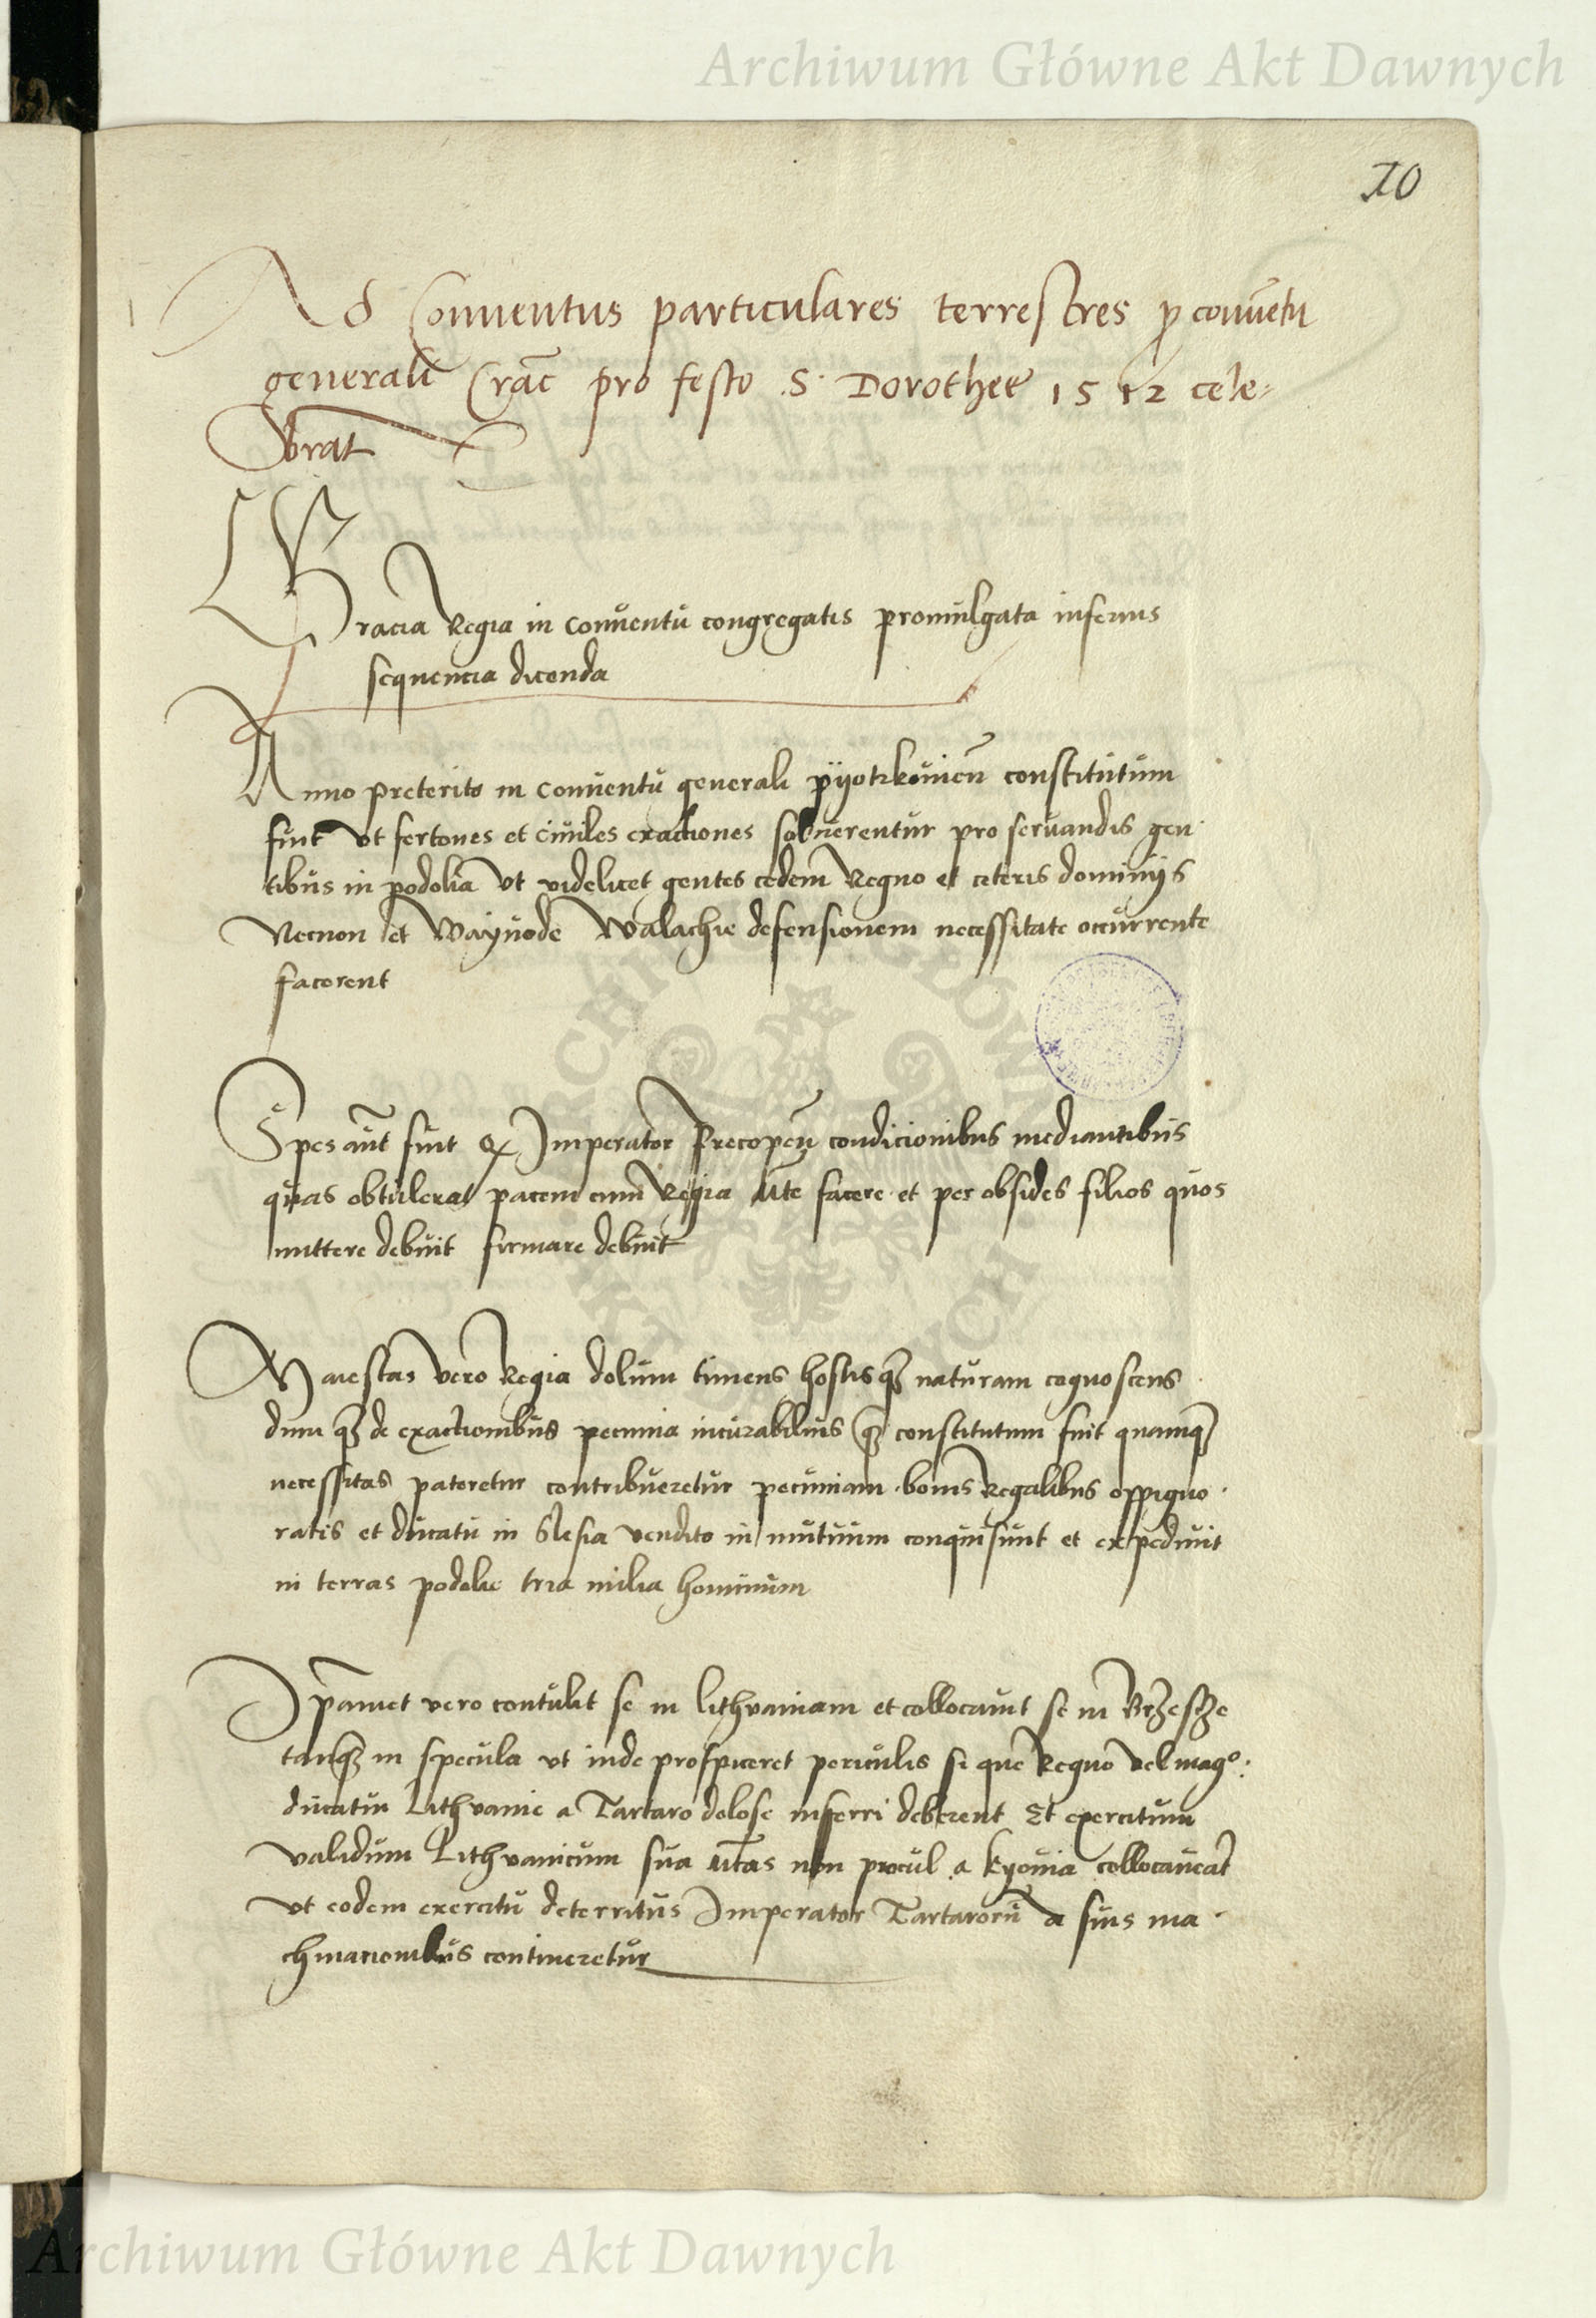 Archiwum Główne Akt Dawnych
10
Ad Conventus particulares terrestres p conventu
generali Crac pro festo S. Dorothee 1512 cele-
brat
Gracia Regia in Conventu congregatis promulgata inferius
sequencia dicenda
Anno preterito in Conventu generali pyotrkovien constitutum
fuit ut fertones et civiles exactiones solverentur pro servandis gen
tibus in podolia ut videlicet gentes eedem Regno et ceteris dominijs
Necnon et Wayvode Walachie defensionem necessitate occurrente
facerent
Spes aut fuit q Imperator Precopen condicionibus mediantibus
quas obtulerat pacem cum Regia Mte facere et per obsides filios quos
mittere debuit firmare debuit
Maiestas vero Regia dolum timens hostisq naturam cognoscens
dum q de exactionibus pecunia constitutum fuit
necessitas pateretur contribueretur pecuniam bonis Regalibus oppigno
ratis et ducatu in Slesia vendito in mutuum conquisivit et expedivit
in terras podolie tria milia hominum
Ipamet vero contulit se in lithvaniam et collocavit se in Brzesczie
tanq in specula ut inde prospiceret periculis si que Regno vel mag°
ducatui Lithvanie a Tartaro dolose inferri deberent Et exercitum
validum Lithvanicum sua Mtas non procul a kyovia collocaverat
ut eodem exercitu deterritus Imperator Tartaroru a suis ma
chinacionibus contineretur
Archiwum Główne Akt Dawnych